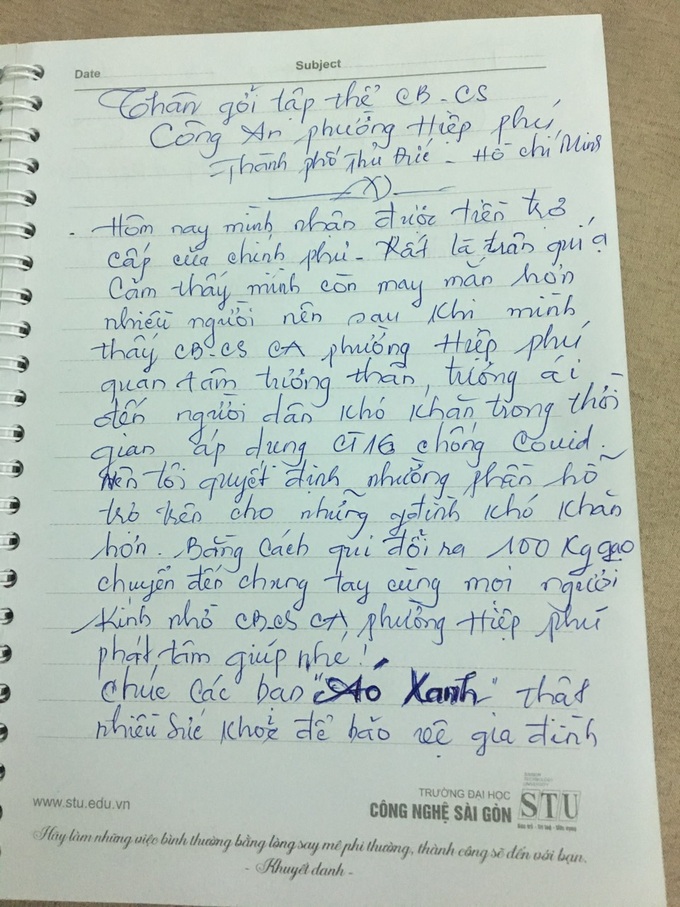 Date
Subject
Thân gởi tập thể CB-CS
Công An phường Hiệp phú
Thành phố Thủ Đức - Hồ Chí Minh
- Hôm nay mình nhận được tiền trợ
cấp của chính phủ. Rất là trân quí ạ
Cảm thấy mình còn may mắn hơn
nhiều người nên sau khi mình
thấy CB-CS CA phường Hiệp phú
quan tâm tương thân, tương ái
đến người dân khó khăn trong thời
gian áp dụng CT16 chống Covid.
Nên tôi quyết định nhường phần hỗ
trợ trên cho những gđình khó khăn
hơn. Bằng cách qui đổi ra 100 Kg gạo
chuyển đến chung tay cùng mọi người
Kính nhờ CB-CS CA phường Hiệp phú
phát tâm giúp nhe!
Chúc các bạn "Áo Xanh" thật
nhiều sức khoẻ để bảo vệ gia đình
www.stu.edu.vn
TRƯỜNG ĐẠI HỌC
CÔNG NGHỆ SÀI GÒN
STU
Hãy làm những việc bình thường bằng lòng say mê phi thường, thành công sẽ đến với bạn.
- Khuyết danh -